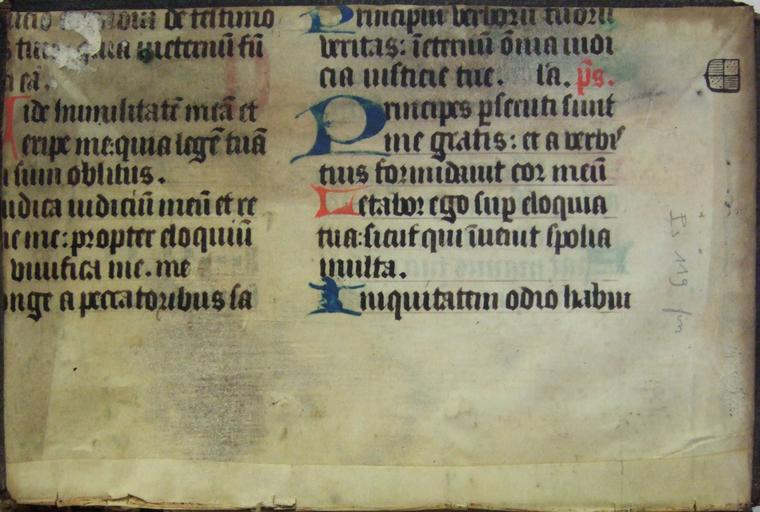 de testimo
tuis quia ineternū fū
ea.
ide humilitatē meā et
eripe me:quia legē tuā
sum oblitus.
udica iudiciū meū et re
me: propter eloquiū
vivifica me. me
onge a peccatoribus sa
Principiū verborū tuorū
veritas: īeternū ōnia iudi
cia iusticie tue. la. ps.
Principes psecuti sunt
me gratis: et a verbis
tuis formidavit cor meū
Letabor ego sup eloquia
tua:sicut qui īvenit spolia
multa.
Iniquitatem odio habui
Ps 119